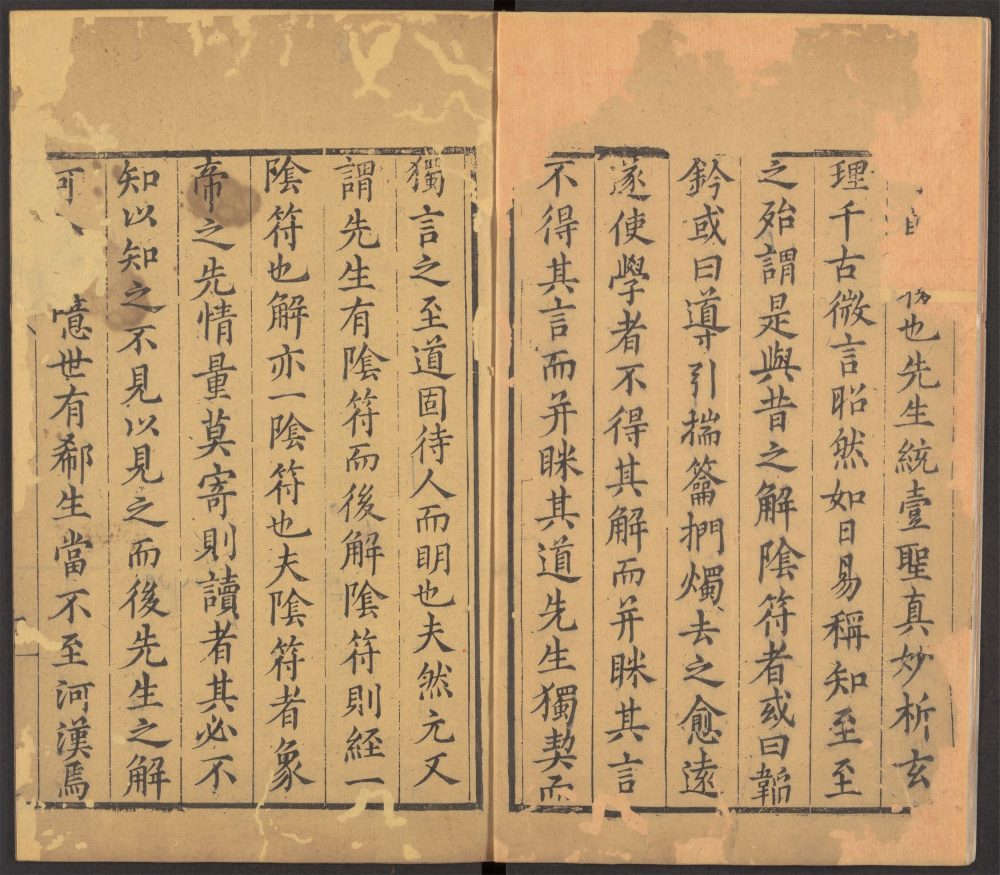 也先生統壹聖真妙析玄
理千古微言昭然如日易稱知至至
之殆謂是與昔之解隂符者或曰韜
鈐或曰導引揣籥捫燭去之愈遠
遂使學者不得其解而并眯其言
不得其言而并眯其道先生獨契而
獨言之至道固待人而明也夫然元又
謂先生有隂符而後解隂符則経一
隂符也解亦一隂符也夫隂符者象
帝之先情量莫寄則讀者其必不
知以知之不見以見之而後先生之解
可 噫世有郗生當不至河漢焉